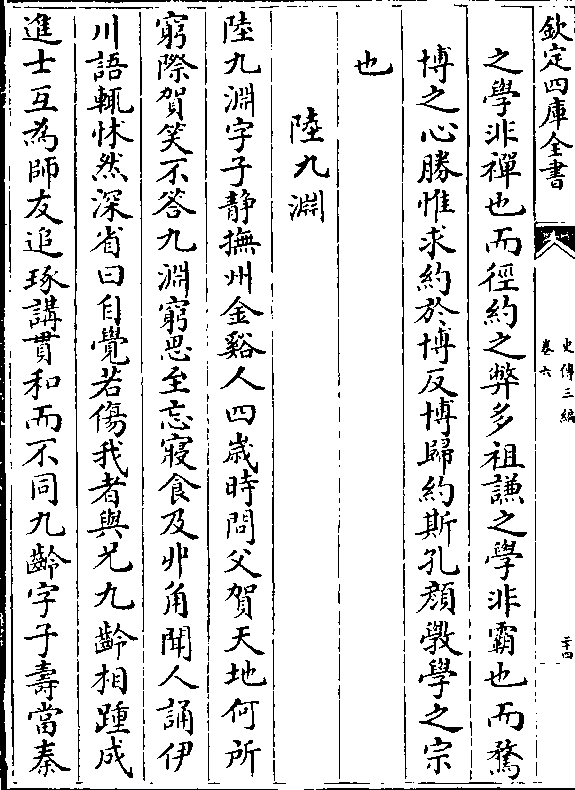 欽定四庫全書
史傳三編
卷六
二十四
之學非禪也而徑約之弊多祖謙之學非霸也而騖
博之心勝惟求約於博反博歸約斯孔顔教學之宗
也
陸九淵
陸九淵字子静撫州金谿人四歲時問父賀天地何所
窮際賀笑不答九淵窮思至忘寢食及丱角聞人誦伊
川語輒怵然深省曰自覺若傷我者與兄九齡相踵成
進士互為師友追琢講貫和而不同九齡字子壽當秦